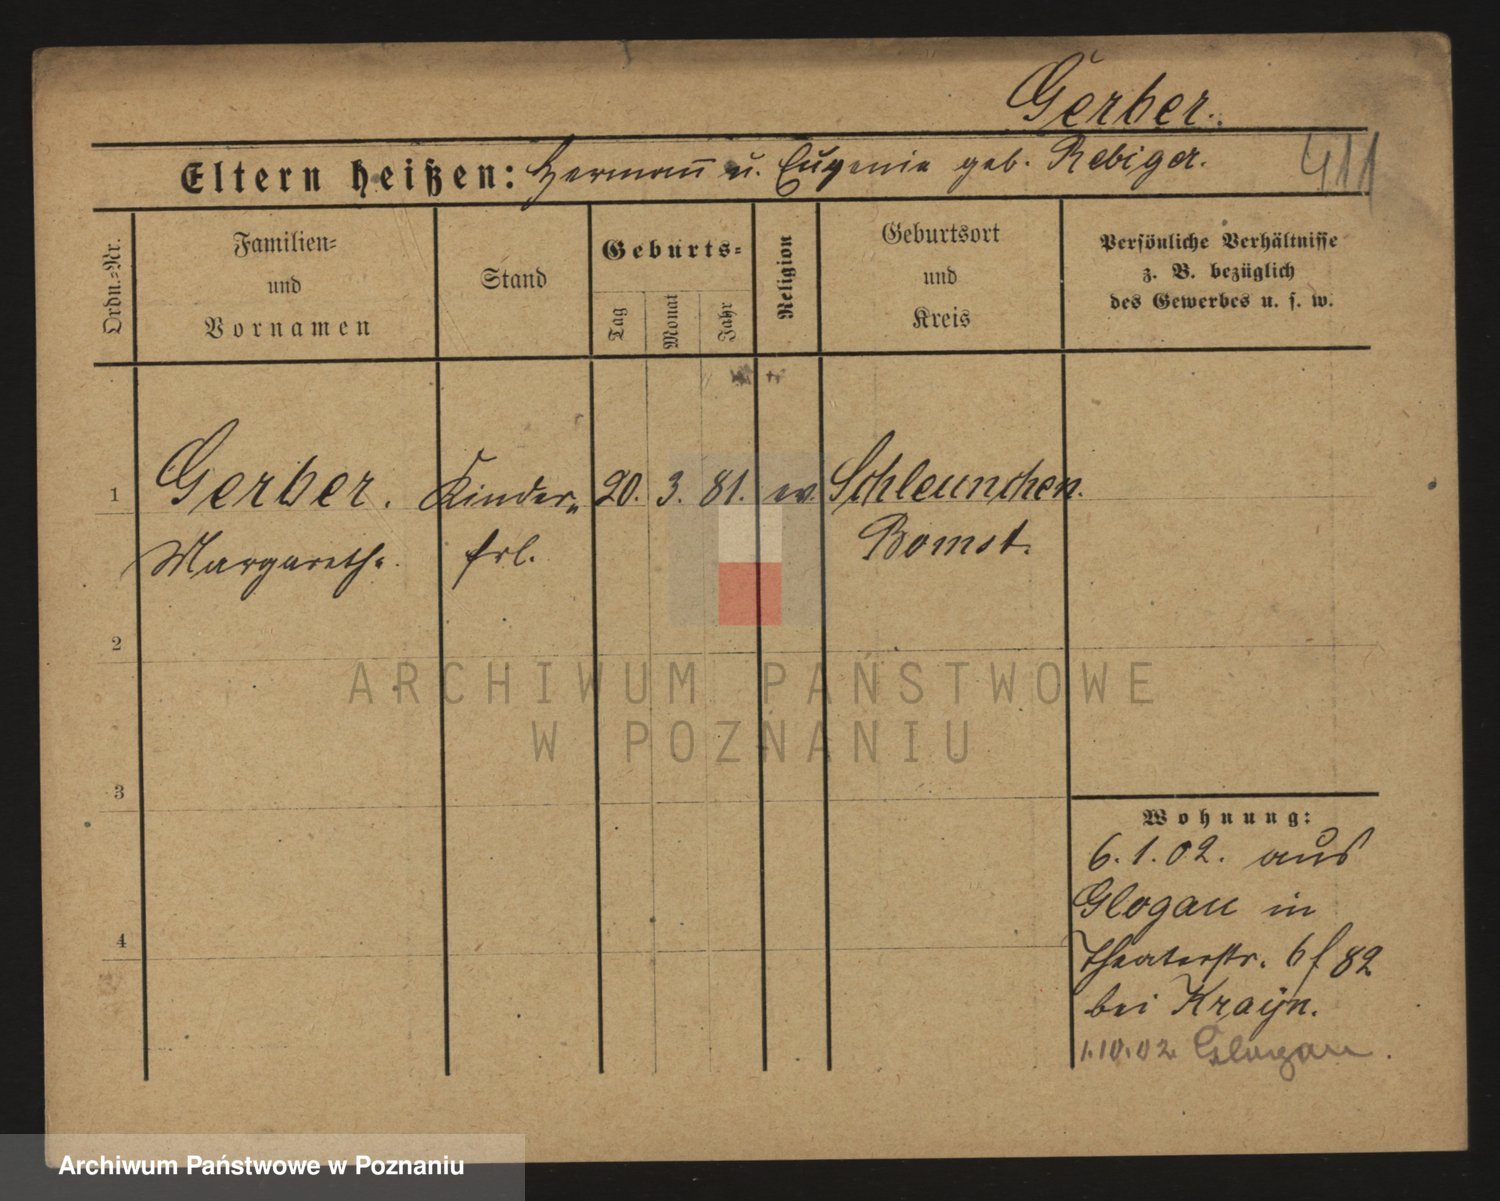 Gerber.
Eltern heißen: Hermann u. Eugenie geb. Rebiger.
411
Ordn.=Nr.
Familien=
und
Vornamen
Stand
Geburts=
Tag
Monat
Jahr
Religion
Geburtsort
und
Kreis
Persönliche Verhältnisse
z. B. bezüglich
des Gewerbes u. s. w.
1 Gerber. Kinder= 20. 3. 81. ev. Schleunchen.
Margarethe. frl. Bomst.
2
3
4
Wohnung:
6.1.02. aus
Glogau in
Theaterstr. 6 f 82
bei Krayn.
1.10.02 Glogau.
ARCHIWUM PAŃSTWOWE
W POZNANIU
Archiwum Państwowe w Poznaniu